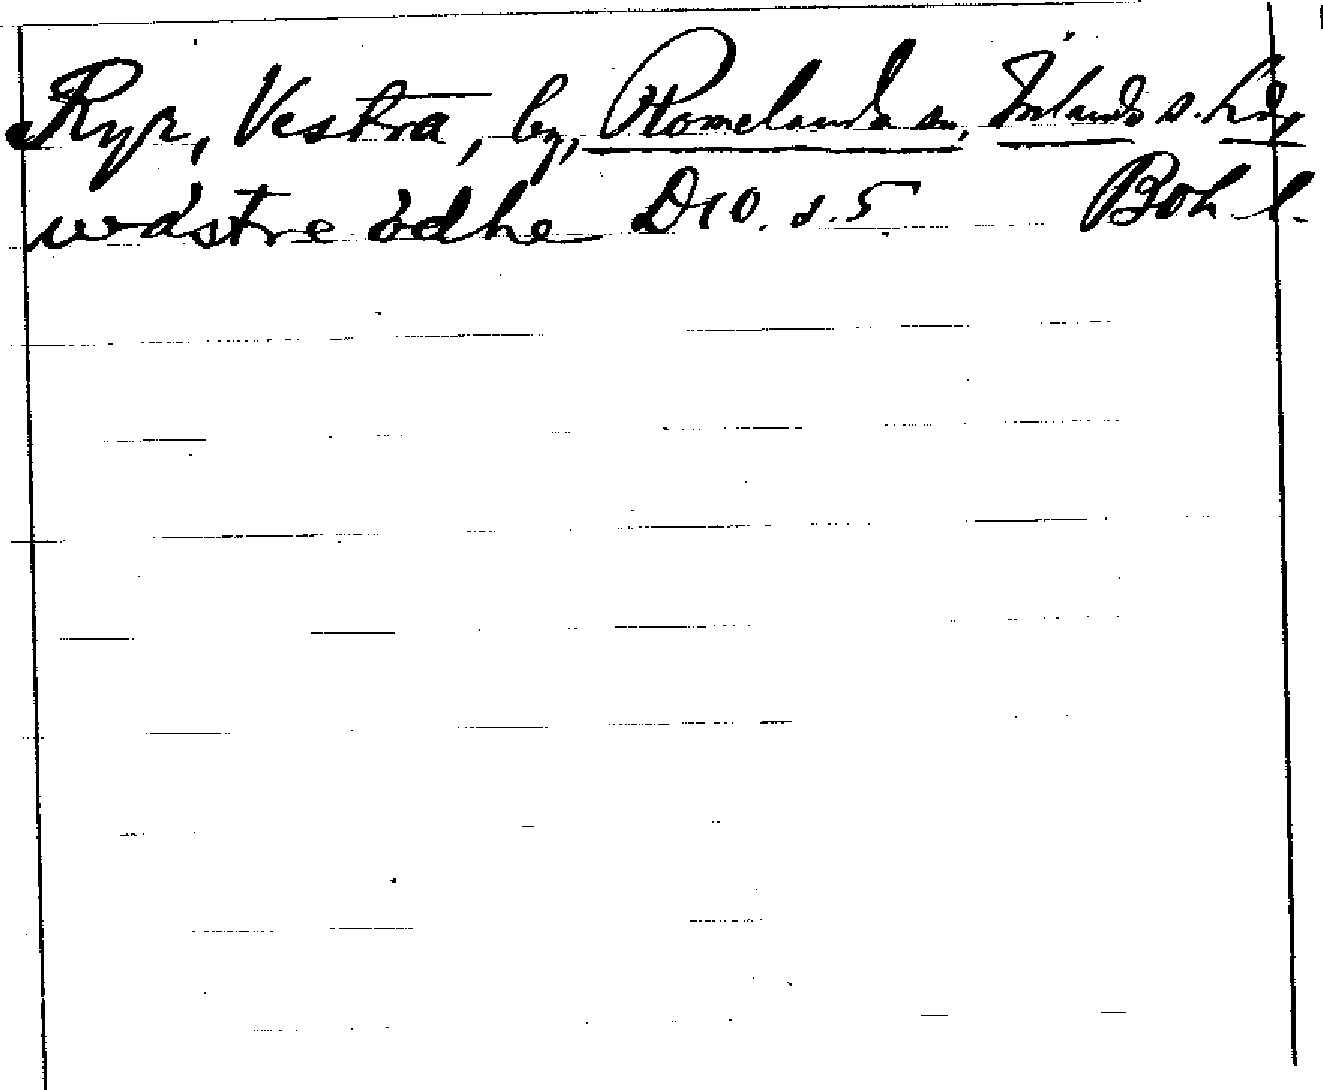 Ryr, Vestra, by, Romelanda sn, Inlands s. hd,
wästre ödhe D10. s. 5 Boh l.